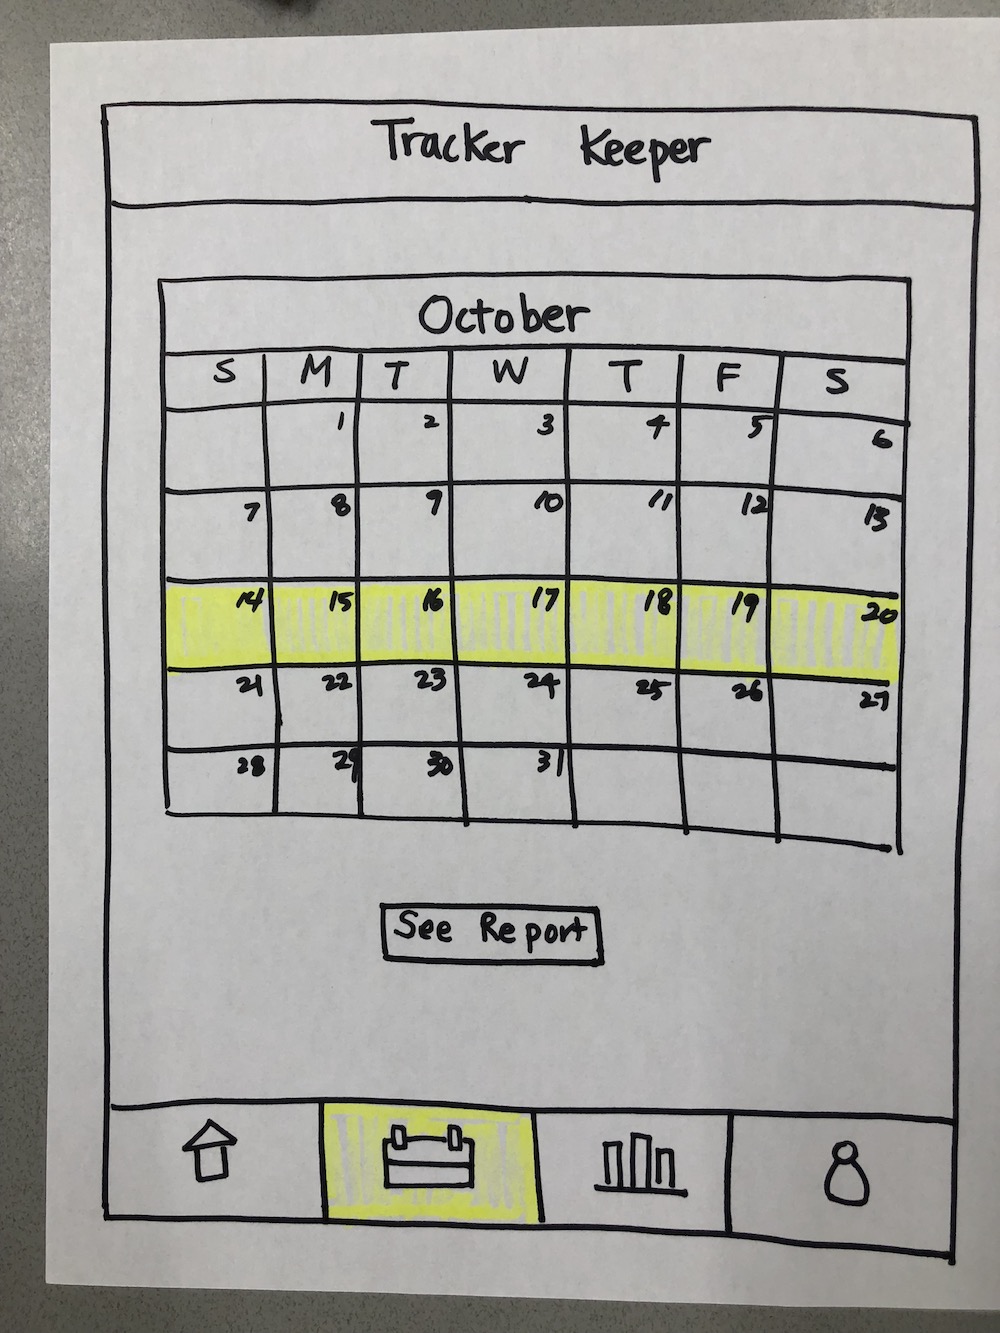 Tracker Keeper
October
S M T W T F S
1 2 3 4 5 6
7 8 9 10 11 12 13
14 15 16 17 18 19 20
21 22 23 24 25 26 27
28 29 30 31
See Report